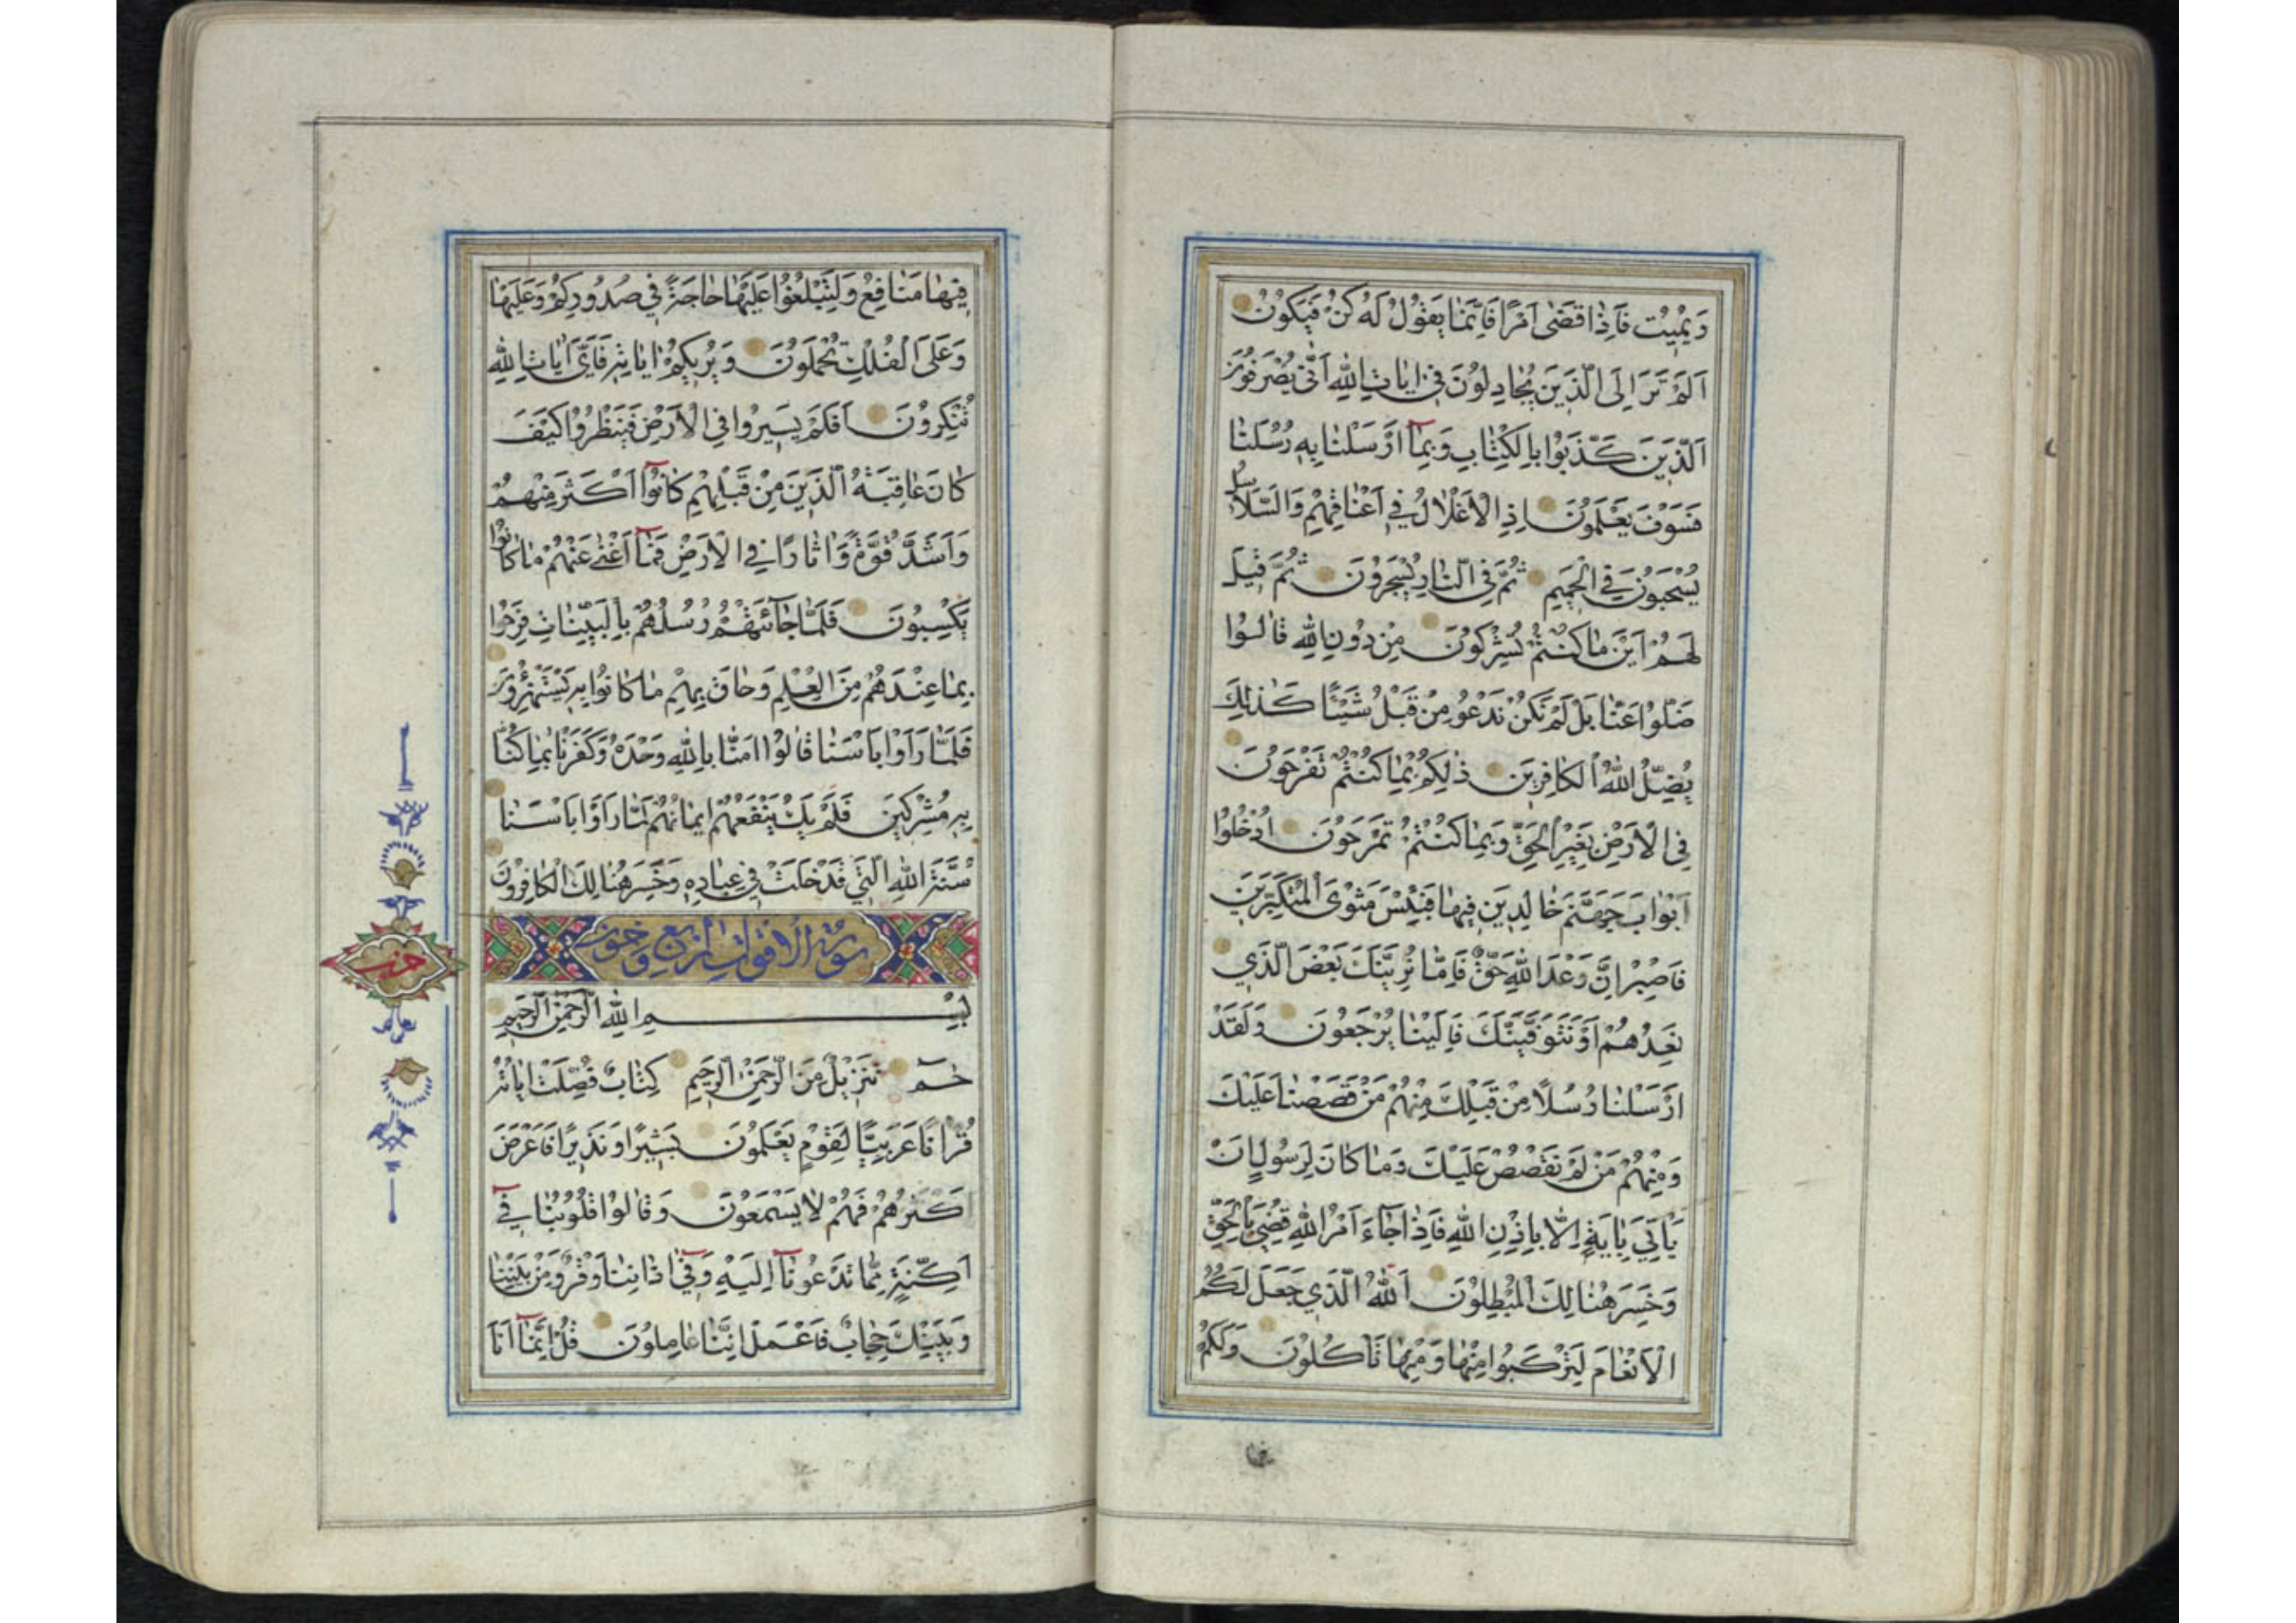 وَيُمِيتُ فَاِذَا قَضٰى اَمْرًا فَاِنَّمَا يَقُولُ لَهُ كُنْ فَيَكُونُ
اَلَمْ تَرَ اِلَى الَّذِينَ يُجَادِلُونَ فِي اٰيَاتِ اللّٰهِ اَنّٰى يُصْرَفُونَ
اَلَّذِينَ كَذَّبُوا بِالْكِتَابِ وَبِمَا اَرْسَلْنَا بِهِ رُسُلَنَا
فَسَوْفَ يَعْلَمُونَ اِذِ الْاَغْلَالُ فِي اَعْنَاقِهِمْ وَالسَّلَاسِلُ
يُسْحَبُونَ فِي الْحَمِيمِ ثُمَّ فِي النَّارِ يُسْجَرُونَ ثُمَّ قِيلَ
لَهُمْ اَيْنَ مَا كُنْتُمْ تُشْرِكُونَ مِنْ دُونِ اللّٰهِ قَالُوا
ضَلُّوا عَنَّا بَلْ لَمْ نَكُنْ نَدْعُو مِنْ قَبْلُ شَيْئًا كَذٰلِكَ
يُضِلُّ اللّٰهُ الْكَافِرِينَ ذٰلِكُمْ بِمَا كُنْتُمْ تَفْرَحُونَ
فِي الْاَرْضِ بِغَيْرِ الْحَقِّ وَبِمَا كُنْتُمْ تَمْرَحُونَ اُدْخُلُوا
اَبْوَابَ جَهَنَّمَ خَالِدِينَ فِيهَا فَبِئْسَ مَثْوَى الْمُتَكَبِّرِينَ
فَاصْبِرْ اِنَّ وَعْدَ اللّٰهِ حَقٌّ فَاِمَّا نُرِيَنَّكَ بَعْضَ الَّذِي
نَعِدُهُمْ اَوْ نَتَوَفَّيَنَّكَ فَاِلَيْنَا يُرْجَعُونَ وَلَقَدْ
اَرْسَلْنَا رُسُلًا مِنْ قَبْلِكَ مِنْهُمْ مَنْ قَصَصْنَا عَلَيْكَ
وَمِنْهُمْ مَنْ لَمْ نَقْصُصْ عَلَيْكَ وَمَا كَانَ لِرَسُولٍ اَنْ
يَأْتِيَ بِاٰيَةٍ اِلَّا بِاِذْنِ اللّٰهِ فَاِذَا جَاءَ اَمْرُ اللّٰهِ قُضِيَ بِالْحَقِّ
وَخَسِرَ هُنَالِكَ الْمُبْطِلُونَ اَللّٰهُ الَّذِي جَعَلَ لَكُمُ
الْاَنْعَامَ لِتَرْكَبُوا مِنْهَا وَمِنْهَا تَأْكُلُونَ وَلَكُمْ
فِيهَا مَنَافِعُ وَلِتَبْلُغُوا عَلَيْهَا حَاجَةً فِي صُدُورِكُمْ وَعَلَيْهَا
وَعَلَى الْفُلْكِ تُحْمَلُونَ وَيُرِيكُمْ اٰيَاتِهِ فَاَيَّ اٰيَاتِ اللّٰهِ
تُنْكِرُونَ اَفَلَمْ يَسِيرُوا فِي الْاَرْضِ فَيَنْظُرُوا كَيْفَ
كَانَ عَاقِبَةُ الَّذِينَ مِنْ قَبْلِهِمْ كَانُوا اَكْثَرَ مِنْهُمْ
وَاَشَدَّ قُوَّةً وَاٰثَارًا فِي الْاَرْضِ فَمَا اَغْنٰى عَنْهُمْ مَا كَانُوا
يَكْسِبُونَ فَلَمَّا جَائَتْهُمْ رُسُلُهُمْ بِالْبَيِّنَاتِ فَرِحُوا
بِمَا عِنْدَهُمْ مِنَ الْعِلْمِ وَحَاقَ بِهِمْ مَا كَانُوا بِهِ يَسْتَهْزِؤُنَ
فَلَمَّا رَاَوْا بَأْسَنَا قَالُوا اٰمَنَّا بِاللّٰهِ وَحْدَهُ وَكَفَرْنَا بِمَا كُنَّا
بِهِ مُشْرِكِينَ فَلَمْ يَكُ يَنْفَعُهُمْ اِيمَانُهُمْ لَمَّا رَاَوْا بَأْسَنَا
سُنَّتَ اللّٰهِ الَّتِي قَدْ خَلَتْ فِي عِبَادِهِ وَخَسِرَ هُنَالِكَ الْكَافِرُونَ
حزب
بِسْمِ اللّٰهِ الرَّحْمٰنِ الرَّحِيمِ
حٰمٓ تَنْزِيلٌ مِنَ الرَّحْمٰنِ الرَّحِيمِ كِتَابٌ فُصِّلَتْ اٰيَاتُهُ
قُرْاٰنًا عَرَبِيًّا لِقَوْمٍ يَعْلَمُونَ بَشِيرًا وَنَذِيرًا فَاَعْرَضَ
اَكْثَرُهُمْ فَهُمْ لَا يَسْمَعُونَ وَقَالُوا قُلُوبُنَا فِي
اَكِنَّةٍ مِمَّا تَدْعُونَا اِلَيْهِ وَفِي اٰذَانِنَا وَقْرٌ وَمِنْ بَيْنِنَا
وَبَيْنِكَ حِجَابٌ فَاعْمَلْ اِنَّنَا عَامِلُونَ قُلْ اِنَّمَا اَنَا